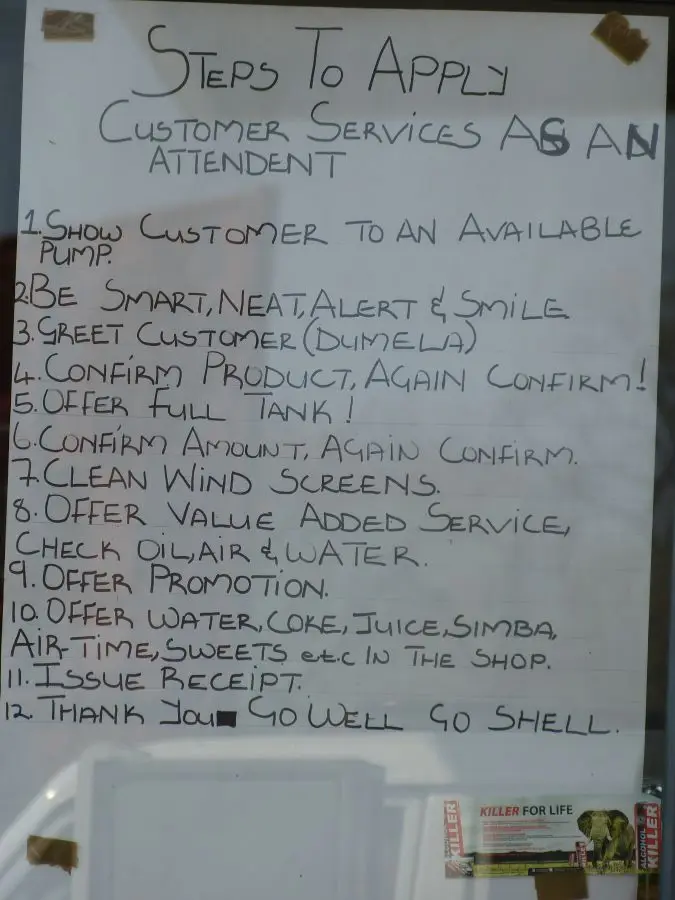 STEPS TO APPLY
CUSTOMER SERVICES AS AN
ATTENDENT
1. SHOW CUSTOMER TO AN AVAILABLE
PUMP.
2. BE SMART, NEAT, ALERT & SMILE
3. GREET CUSTOMER (DUMELA)
4. CONFIRM PRODUCT, AGAIN CONFIRM!
5. OFFER FULL TANK!
6. CONFIRM AMOUNT, AGAIN CONFIRM.
7. CLEAN WIND SCREENS.
8. OFFER VALUE ADDED SERVICE,
CHECK OIL, AIR & WATER.
9. OFFER PROMOTION.
10. OFFER WATER, COKE, JUICE, SIMBA,
AIR-TIME, SWEETS e.t.c IN THE SHOP.
11. ISSUE RECEIPT.
12. THANK YOU GO WELL GO SHELL.
KILLER FOR LIFE
KILLER
ALCOHOL
KILLER